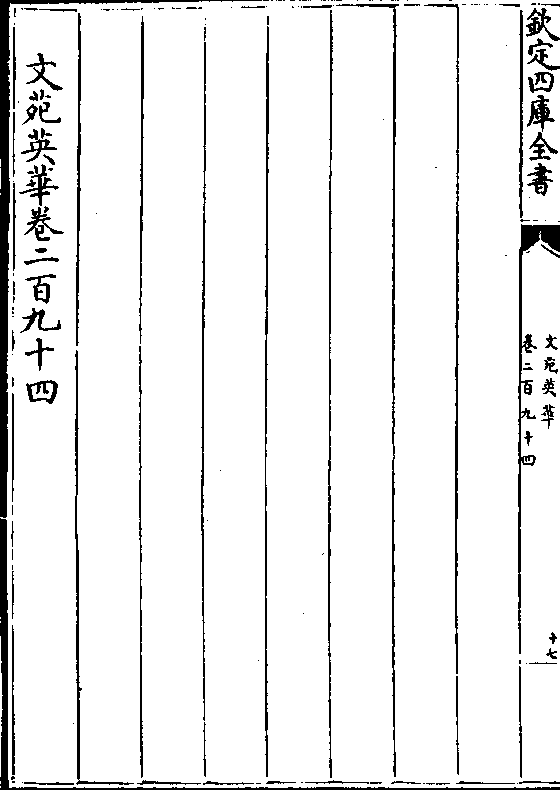 欽定四庫全書
文苑英華
卷二百九十四
十七
文苑英華卷二百九十四